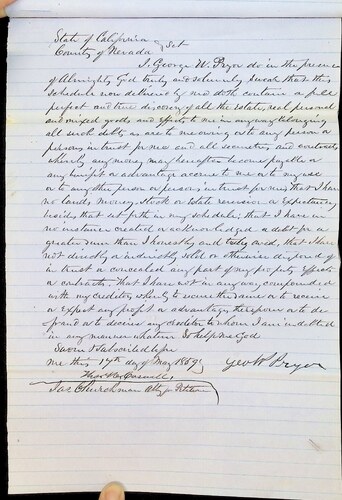 State of California } Sct
County of Nevada
I, George W. Pryor do in the presence
of Almighty God truly and solemnly swear that the
schedule now delivered by me doth contain a full
perfect and true discovery of all the estate, real personal
and mixed goods and effects to me in any way belonging
all such debts as are to me owing or to any person or
persons in trust for me and all securities and contracts
whereby any money may hereafter become payable or
any benefit or advantage accrue to me or to my use
or to any other person or persons in trust for me, that I have
no lands, money, stock or estate reversion or expectancy
besides that set forth in my schedule, that I have in
no instance created or acknowledged a debt for a
greater sum than I honestly and truly owed, that I have
not directly or indirectly sold or otherwise disposed of
in trust or concealed any part of my property effects
or contracts. That I have not in any way compounded
with my creditors whereby to secure the same or to receive
or expect any profit or advantage therefrom or to de
fraud or to deceive any creditor to whom I am indebted
in any manner whatever So help me God
Sworn & subscribed before
me this 17th day of May 1869
Geo W Pryor
Jas Churchman Atty for Petitioner